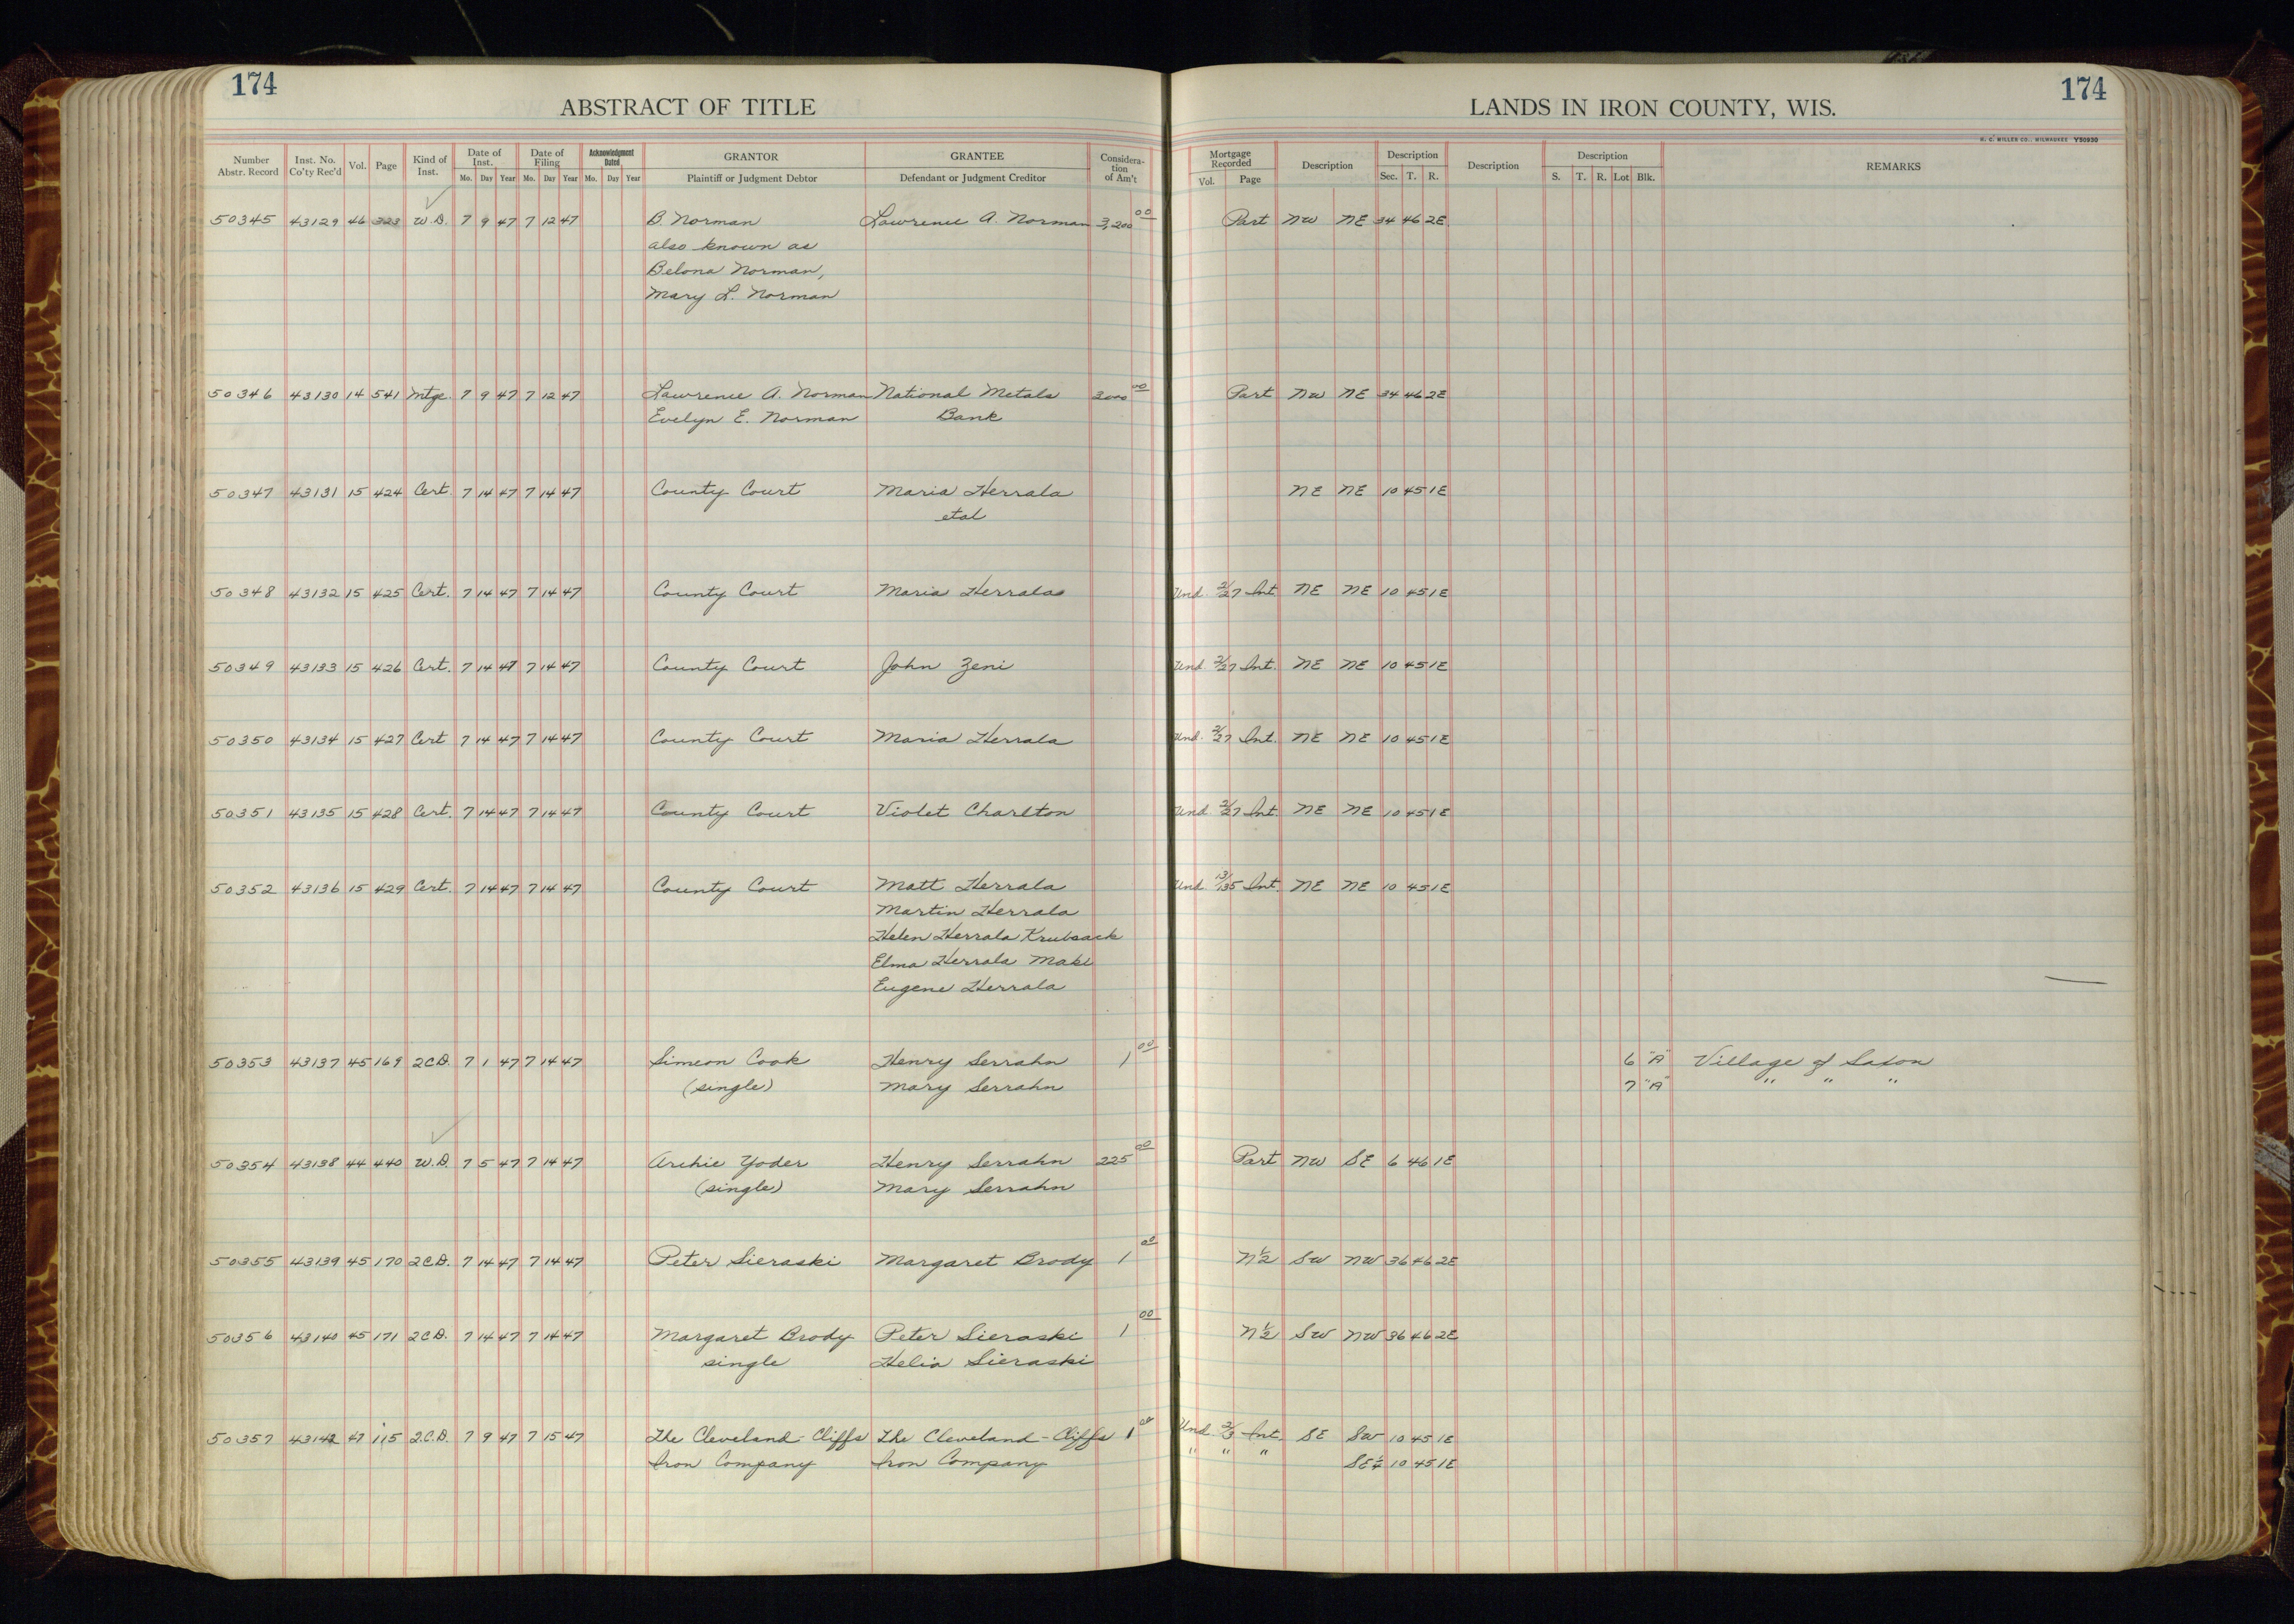 174
ABSTRACT OF TITLE
LANDS IN IRON COUNTY, WIS.
174
H. C. MILLER CO., MILWAUKEE Y50930
Number Abstr. Record Inst. No. Co'ty Rec'd Vol. Page Kind of Inst. Date of Inst. Mo. Day Year Date of Filing Mo. Day Year Acknowledgment Dated Mo. Day Year GRANTOR Plaintiff or Judgment Debtor GRANTEE Defendant or Judgment Creditor Consideration of Am't Mortgage Recorded Vol. Page Description Description Sec. T. R. Description Description S. T. R. Lot Blk. REMARKS
50345 43129 46 323 W.D. 7 9 47 7 12 47 B Norman Lawrence A. Norman 3,200 00 Part NW NE 34 46 2E
also known as
Belona Norman,
Mary L. Norman
50346 43130 14 541 Mtge. 7 9 47 7 12 47 Lawrence A. Norman National Metals 3000 00 Part NW NE 34 46 2E
Evelyn E. Norman Bank
50347 43131 15 424 Cert. 7 14 47 7 14 47 County Court Maria Herrala NE NE 10 45 1E
etal
50348 43132 15 425 Cert. 7 14 47 7 14 47 County Court Maria Herrala Und. 2/27 Int. NE NE 10 45 1E
50349 43133 15 426 Cert. 7 14 47 7 14 47 County Court John Zeni Und. 2/27 Int. NE NE 10 45 1E
50350 43134 15 427 Cert 7 14 47 7 14 47 County Court Maria Herrala Und. 2/27 Int. NE NE 10 45 1E
50351 43135 15 428 Cert. 7 14 47 7 14 47 County Court Violet Charlton Und. 2/27 Int. NE NE 10 45 1E
50352 43136 15 429 Cert. 7 14 47 7 14 47 County Court Matt Herrala Und. 13/135 Int. NE NE 10 45 1E
Martin Herrala
Helen Herrala Krubsack
Elma Herrala Maki
Eugene Herrala
50353 43137 45 169 2CD. 7 1 47 7 14 47 Simeon Cook Henry Serrahn 1 00 6 "A" Village of Saxon
(single) Mary Serrahn 7 "A" " " "
50354 43138 44 440 W.D. 7 5 47 7 14 47 Archie Yoder Henry Serrahn 225 00 Part NW SE 6 46 1E
(single) Mary Serrahn
50355 43139 45 170 2CD. 7 14 47 7 14 47 Peter Sieraski Margaret Brody 1 00 N½ SW NW 36 46 2E
50356 43140 45 171 2CD. 7 14 47 7 14 47 Margaret Brody Peter Sieraski 1 00 N½ SW NW 36 46 2E
single Helia Sieraski
50357 43142 47 115 2.C.D. 7 9 47 7 15 47 The Cleveland-Cliffs The Cleveland-Cliffs 1 00 Und. 2/3 Int. SE SW 10 45 1E
Iron Company Iron Company " " " SE¼ 10 45 1E